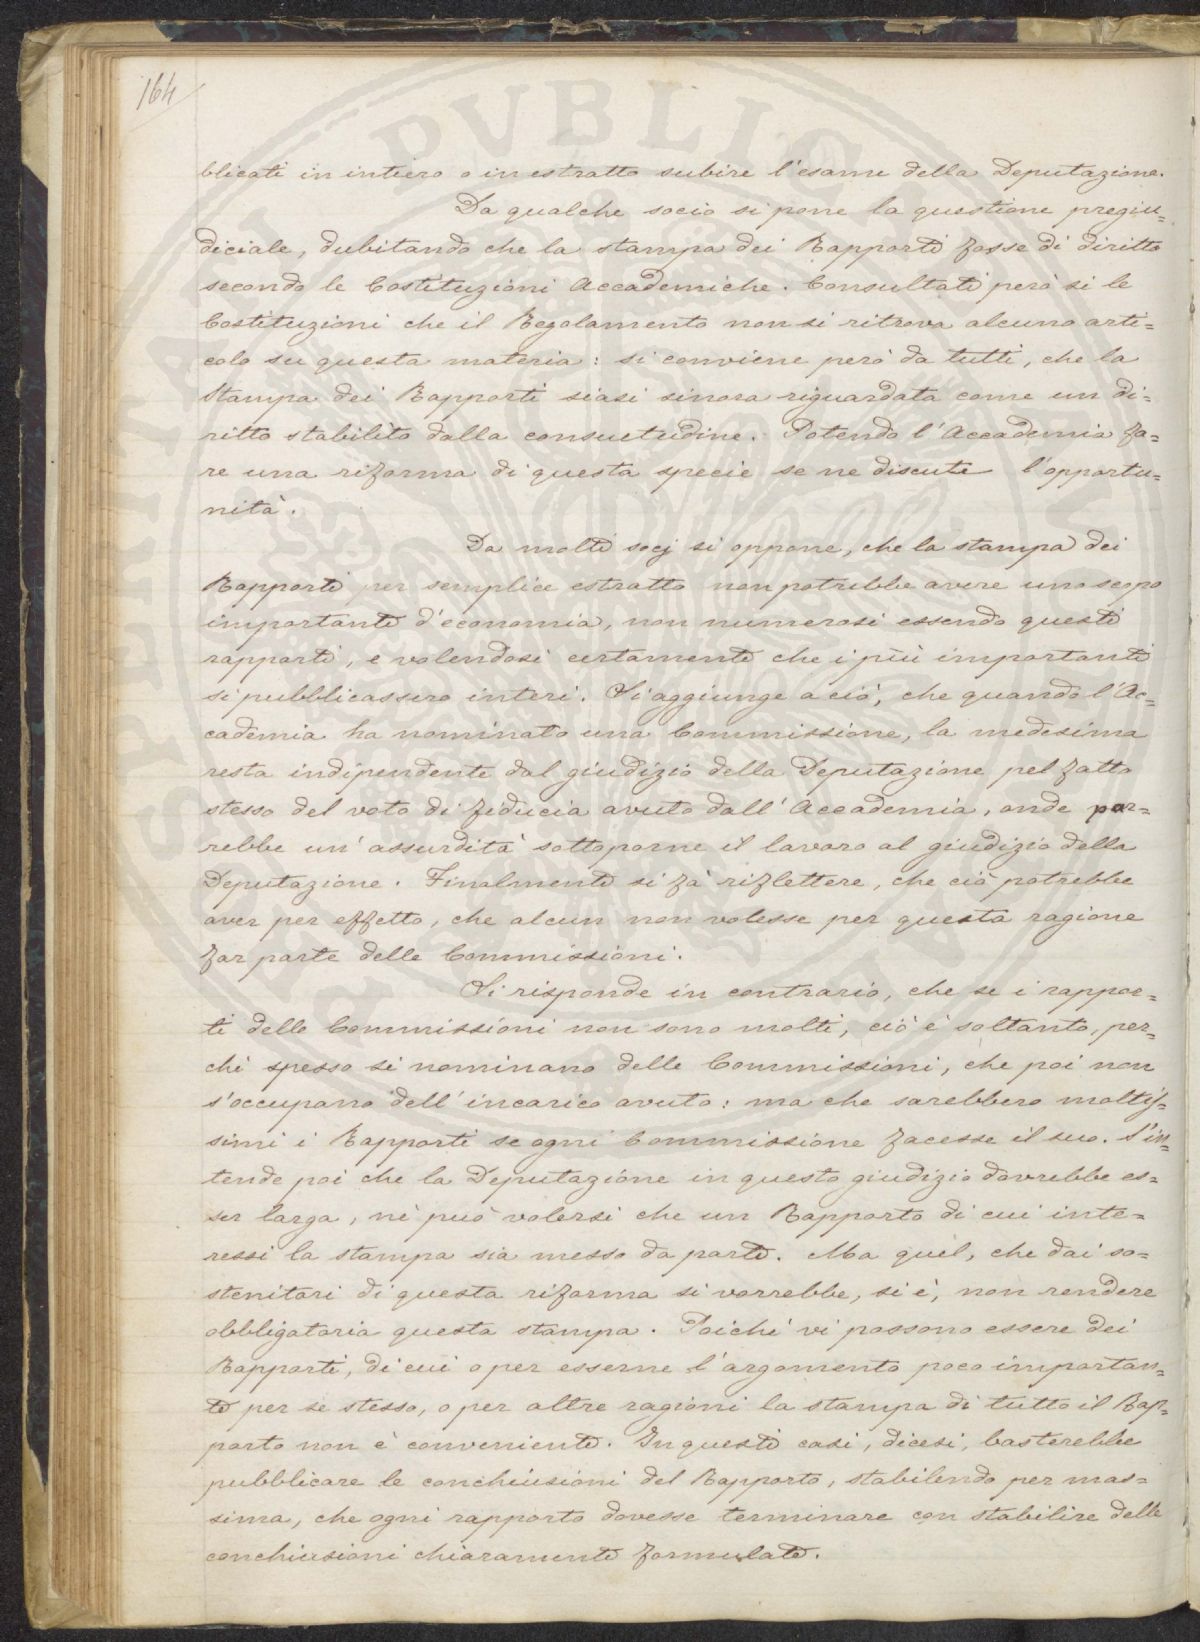 164
blicati in intiero o in estratto subire l'esame della Deputazione.
Da qualche socio si pone la questione pregiu=
diciale, dubitando che la stampa dei Rapporti fosse di diritto
secondo le Costituzioni Accademiche. Consultati però sì le
Costituzioni che il Regolamento non si ritrova alcuno arti=
colo su questa materia: si conviene però da tutti, che la
stampa dei Rapporti siasi sinora riguardata come un di=
ritto stabilito dalla consuetudine. Potendo l'Accademia fa=
re una riforma di questa specie se ne discute l'opportu=
nità.
Da molti socj si oppone, che la stampa dei
Rapporti per semplice estratto non potrebbe avere uno scopo
importante d'economia, non numerosi essendo questi
rapporti, e volendosi certamente che i più importanti
si pubblicassero interi. Si aggiunge a ciò, che quando l'Ac=
cademia ha nominato una Commissione, la medesima
resta indipendente dal giudizio della Deputazione pel fatto
stesso del voto di fiducia avuto dall'Accademia, onde par=
rebbe un'assurdità sottoporne il lavoro al giudizio della
Deputazione. Finalmente si fà riflettere, che ciò potrebbe
aver per effetto, che alcun non volesse per questa ragione
far parte delle Commissioni.
Si risponde in contrario, che se i rappor=
ti delle Commissioni non sono molti, ciò è soltanto, per=
chè spesso si nominano delle Commissioni, che poi non
s'occupano dell'incarico avuto: ma che sarebbero moltis=
simi i Rapporti se ogni Commissione facesse il suo. S'in=
tende poi che la Deputazione in questo giudizio dovrebbe es=
ser larga, nè può volersi che un Rapporto di cui inte=
ressi la stampa sia messo da parte. Ma quel, che dai so=
stenitari di questa riforma si vorrebbe, si è, non rendere
obbligatoria questa stampa. Poichè vi possono essere dei
Rapporti, di cui o per esserne l'argomento poco importan=
te per se stesso, o per altre ragioni la stampa di tutto il Rap=
porto non è conveniente. In questi casi, dicesi, basterebbe
pubblicare le conchiusioni del Rapporto, stabilendo per mas=
sima, che ogni rapporto dovesse terminare con stabilire delle
conchiusioni chiaramente formulate.